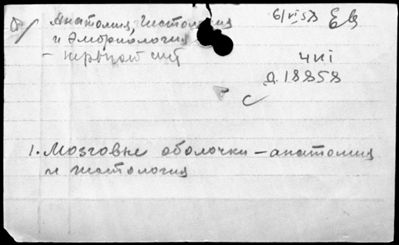 Анатомия, гистология
и эмбриология
- нервной сист
6/VI 53
ЧКІ
д. 18858
с
1. Мозговые оболочки - анатомия
и гистология